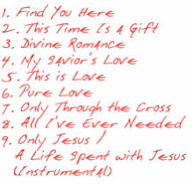 1. Find You Here
2. This Time Is A Gift
3. Divine Romance
4. My Savior's Love
5. This is Love
6. Pure Love
7. Only Through the Cross
8. All I've Ever Needed
9. Only Jesus /
A Life Spent with Jesus
(Instrumental)